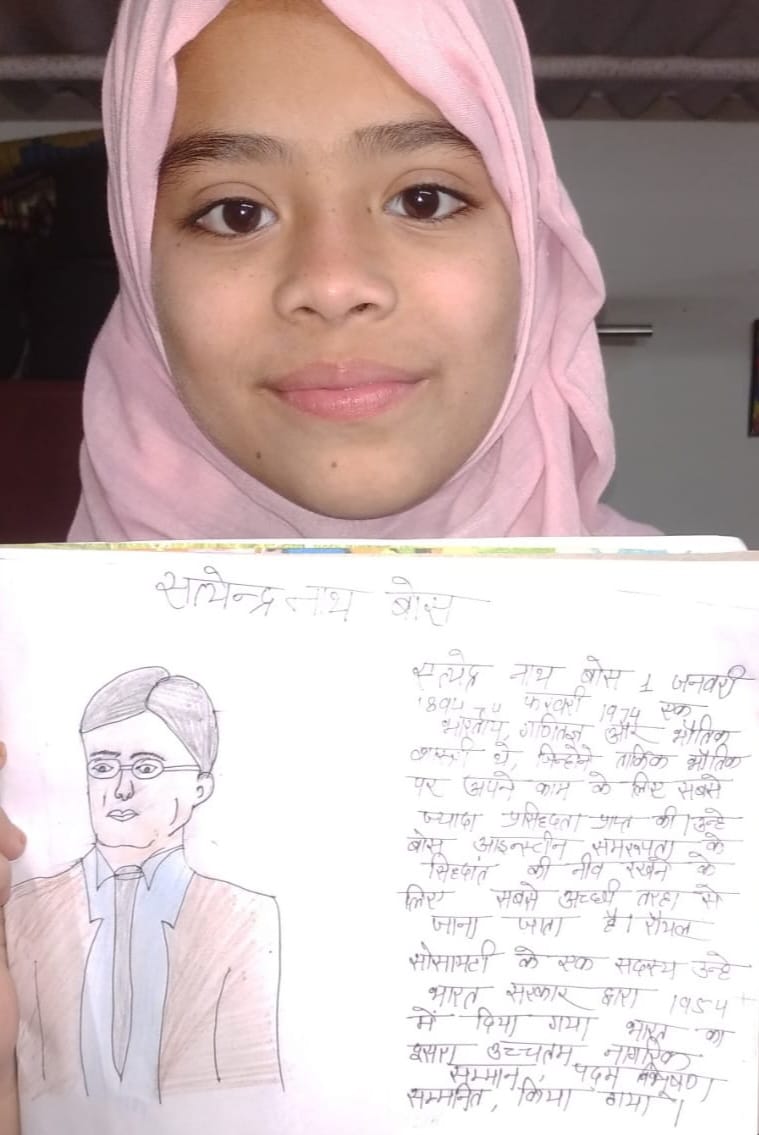 सत्येन्द्र नाथ बोस
सत्येद्र नाथ बोस 1 जनवरी
1894 74 फरवरी 1974 एक
भारतीय, गणितज्ञ और भौतिक
शास्त्री थे, जिन्होने तार्किक भौतिक
पर अपने काम के लिए सबसे
ज्यादा प्रसिद्दता प्राप्त की। उन्हे
बोस आइनस्टीन समरूपता के
सिद्दांत की नीव रखने के
लिए सबसे अच्छी तरहा से
जाना जाता है। रॉयल
सोसायटी के एक सदस्य उन्हे
भारत सरकार द्वारा 1954
में दिया गया भारत का
दूसरा उच्चतम नागरिक
सम्मान, पदम विभूषण
सम्मनित, किया गया।